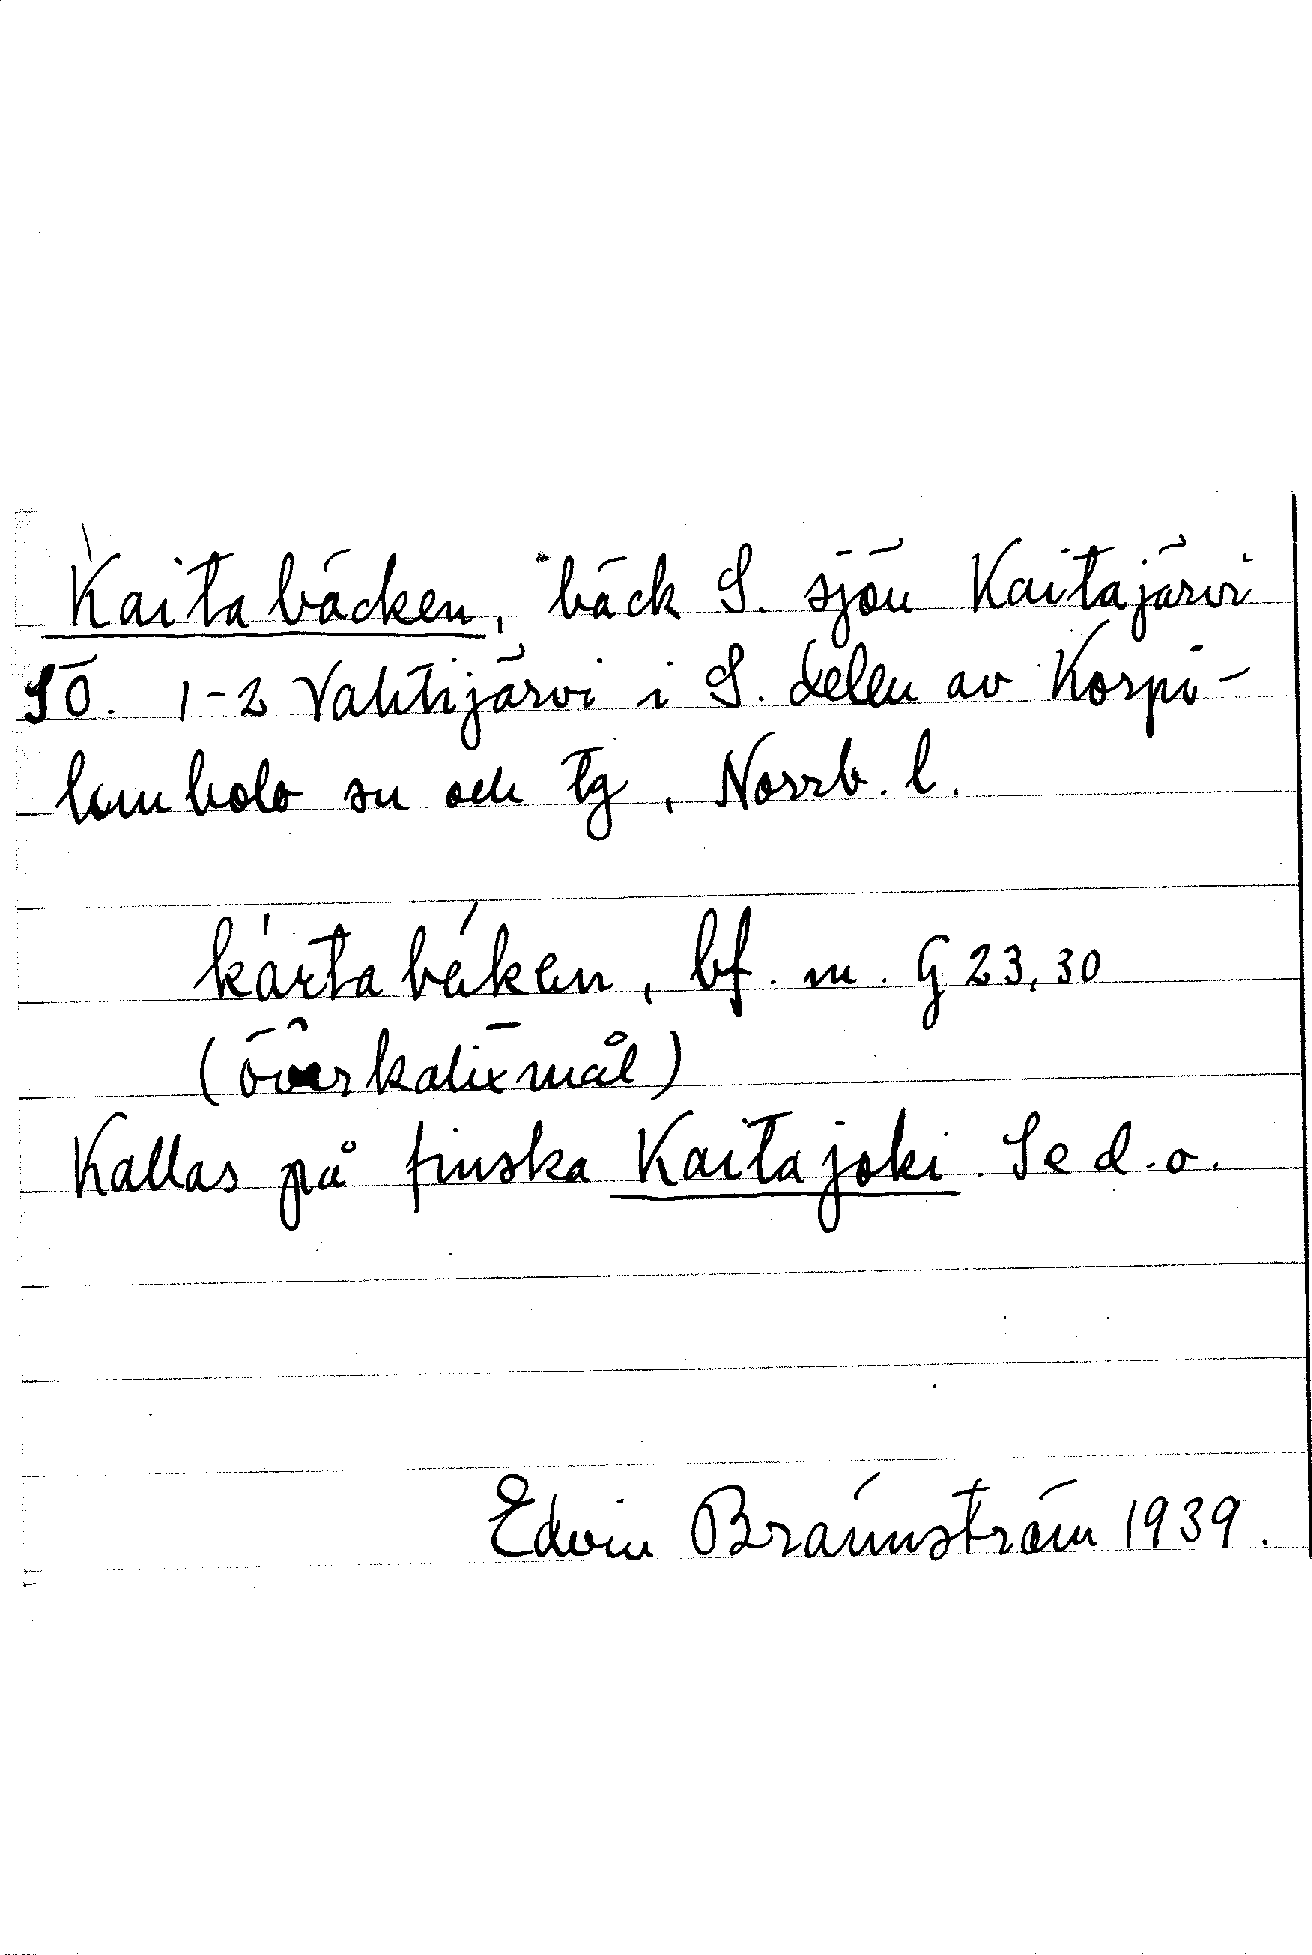 Kaitabäcken, bäck S. sjön Kaitajärvi
SÖ. 1-2 Vahtijärvi i S. delen av Korpi-
lombolo sn och tg, Norrb. l.
bf. m. G 23,30
(överkalixmål)
Kallas på finska Kaitajoki. Se d. o.
Edvin Brännström 1939.